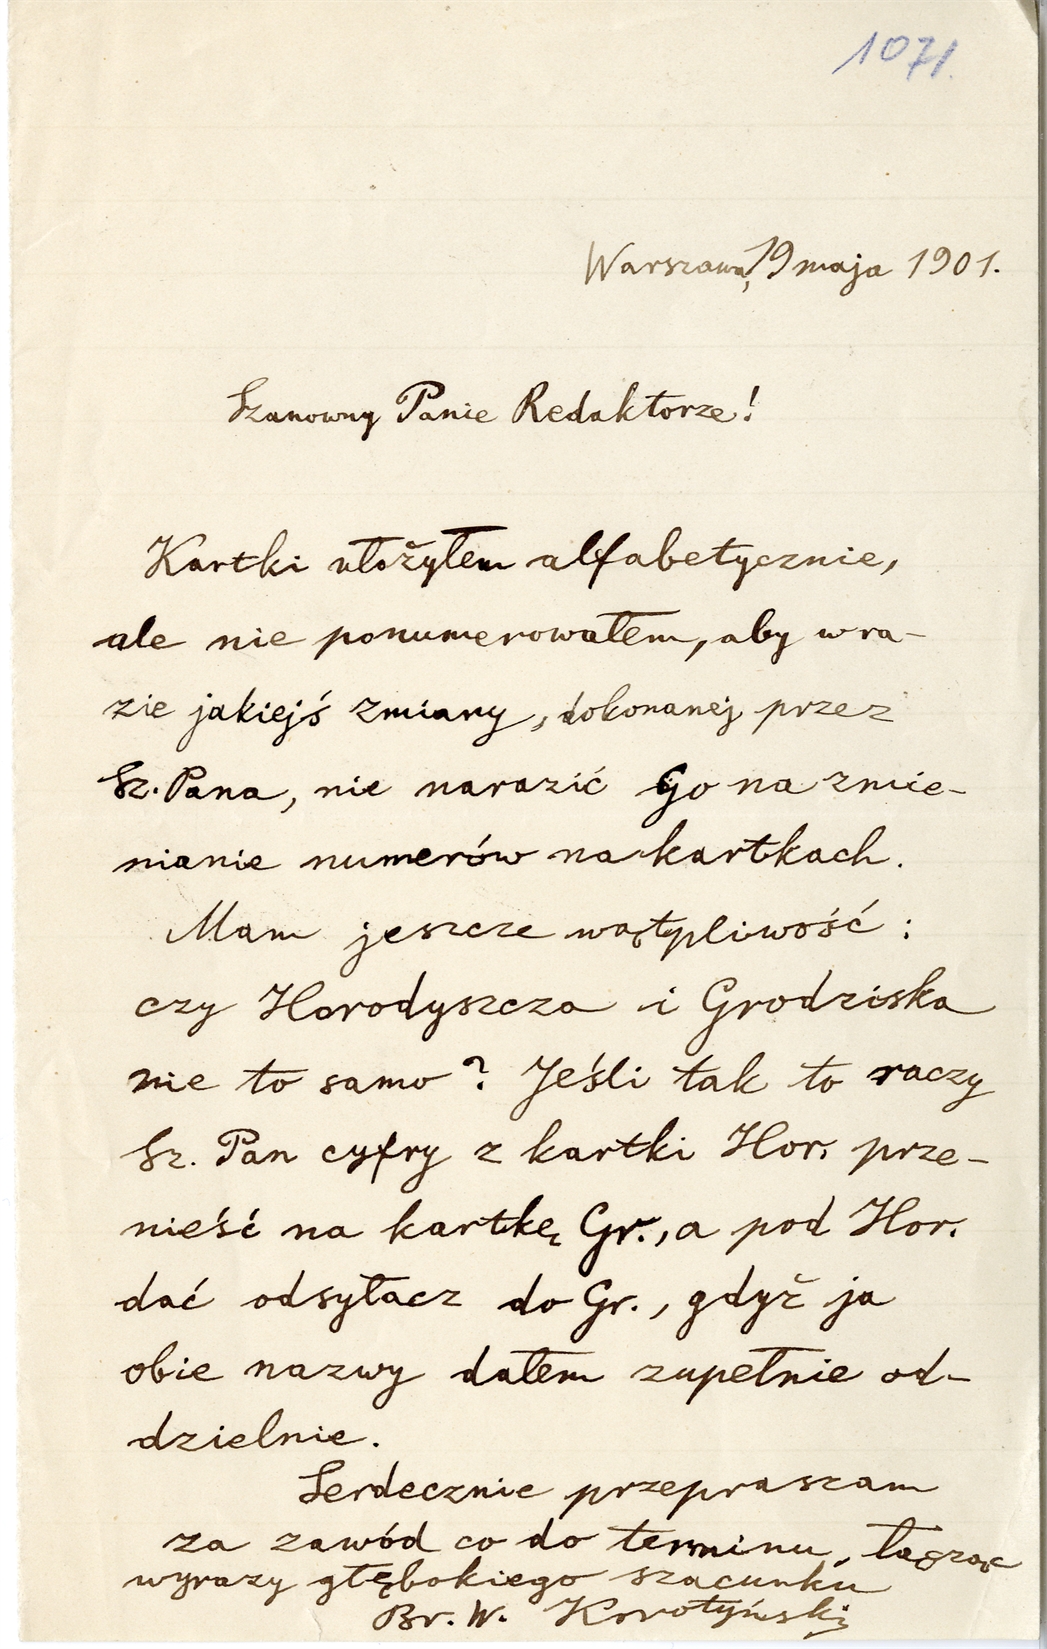 1071.
Warszawa, 19 maja 1901.
Szanowny Panie Redaktorze!
Kartki ułożyłem alfabetycznie,
ale nie ponumerowałem, aby w ra-
zie jakiejś zmiany, dokonanej przez
Sz. Pana, nie narazić Go na zmie-
nianie numerów na kartkach.
Mam jeszcze wątpliwość:
czy Horodyszcza i Grodziska
nie to samo? Jeśli tak to raczy
Sz. Pan cyfry z kartki Hor. prze-
nieść na kartkę Gr., a pod Hor.
dać odsyłacz do Gr., gdyż ja
obie nazwy dałem zupełnie od-
dzielnie.
Serdecznie przepraszam
za zawód co do terminu, łącząc
wyrazy głębokiego szacunku
Br. W. Korotyński